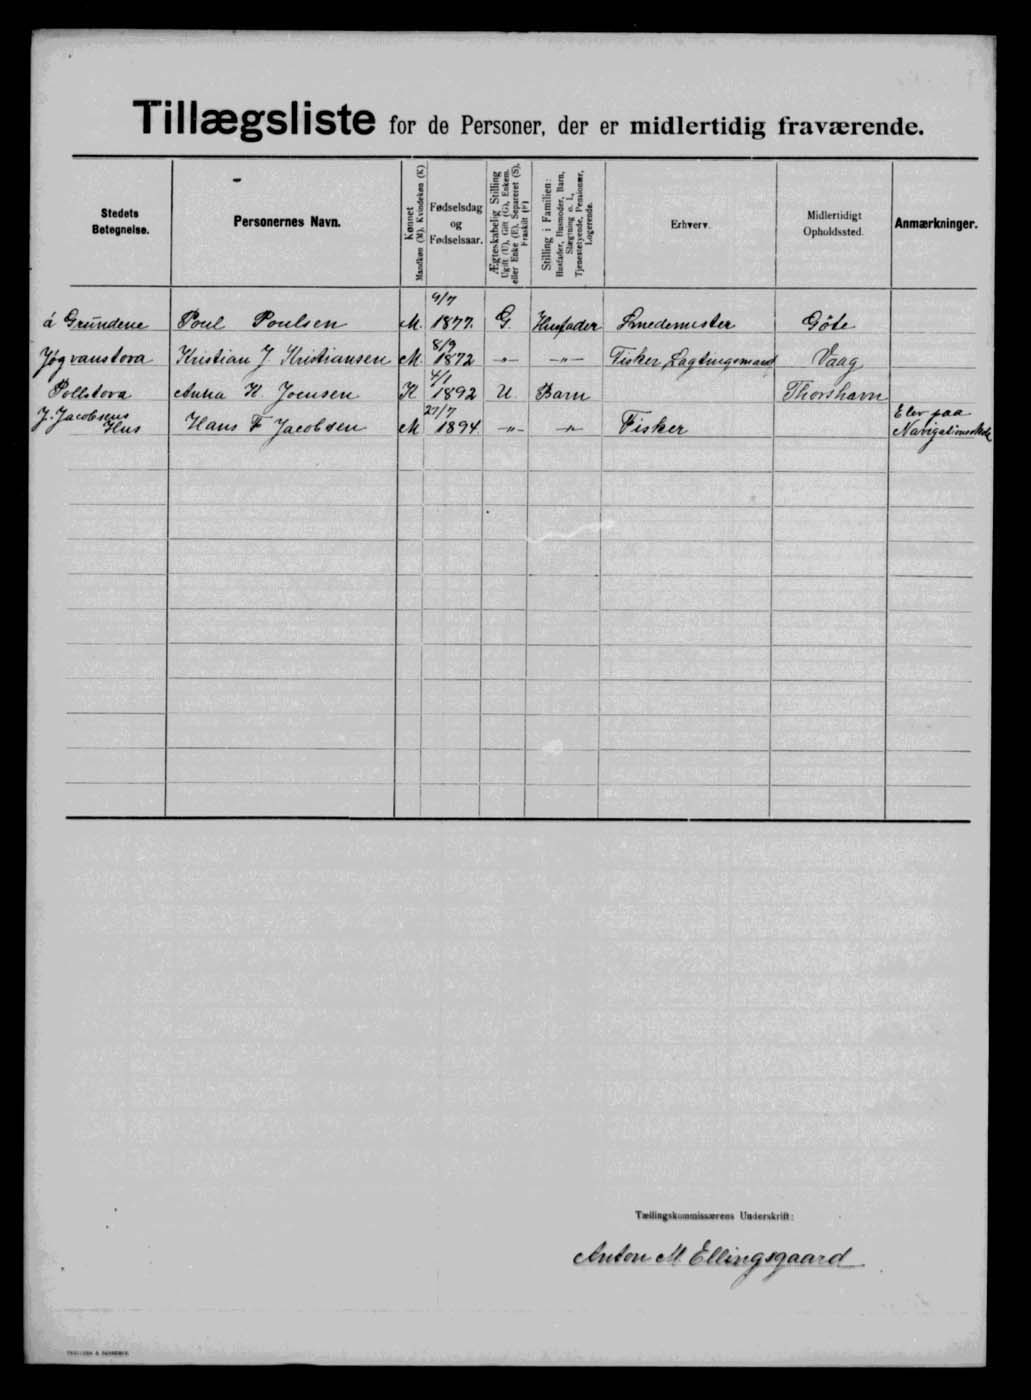 Tillægsliste for de Personer, der er midlertidig fraværende.
Stedets Betegnelse.
Personernes Navn.
Kønnet Mandkøn (M). Kvindekøn (K)
Fødselsdag og Fødselsaar.
Ægteskabelig Stilling Ugift (U), Gift (G), Enkem. eller Enke (E), Separeret (S), Fraskilt (F)
Stilling i Familien: Husfader, Husmoder, Barn, Slægtning o. l., Tjenestetyende, Pensionær, Logerende.
Erhverv.
Midlertidigt Opholdssted.
Anmærkninger.
á Grúndene Poul Poulsen M. 9/7 1877. G. Husfader Smedemester Göte
Jógvanstova Kristian J. Kristiansen M. 8/9 1872 -"- -"- Fisker, Lagtingsmand Vaag
Pollstova Anna K. Joensen K 4/1 1892 U. Barn Thorshavn
J. Jacobsens Hus Hans F Jacobsen M 27/7 1894. -"- -"- Fisker Elev paa Navigationsskole
Tællingskommissærens Underskrift:
Anton M. Ellingsgaard